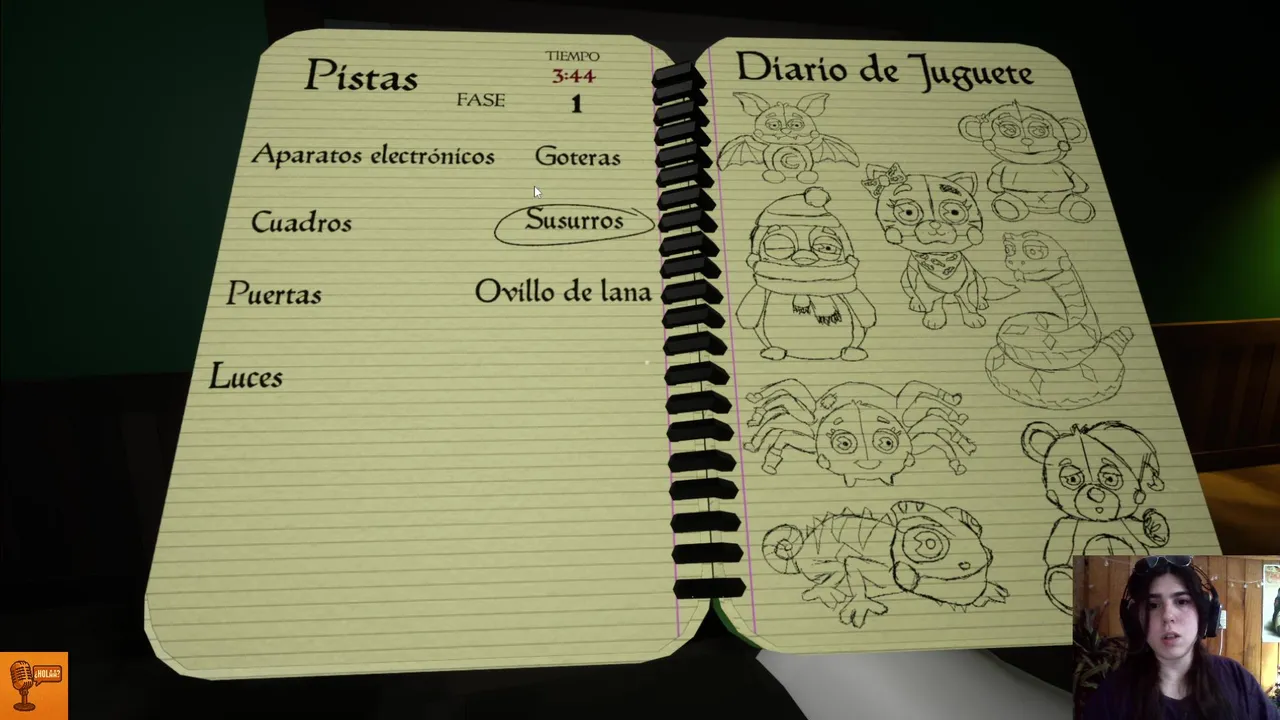 Pistas
TIEMPO
3:44
FASE 1
Aparatos electrónicos
Goteras
Cuadros
Susurros
Puertas
Ovillo de lana
Luces
Diario de Juguete
¡HOLAA?